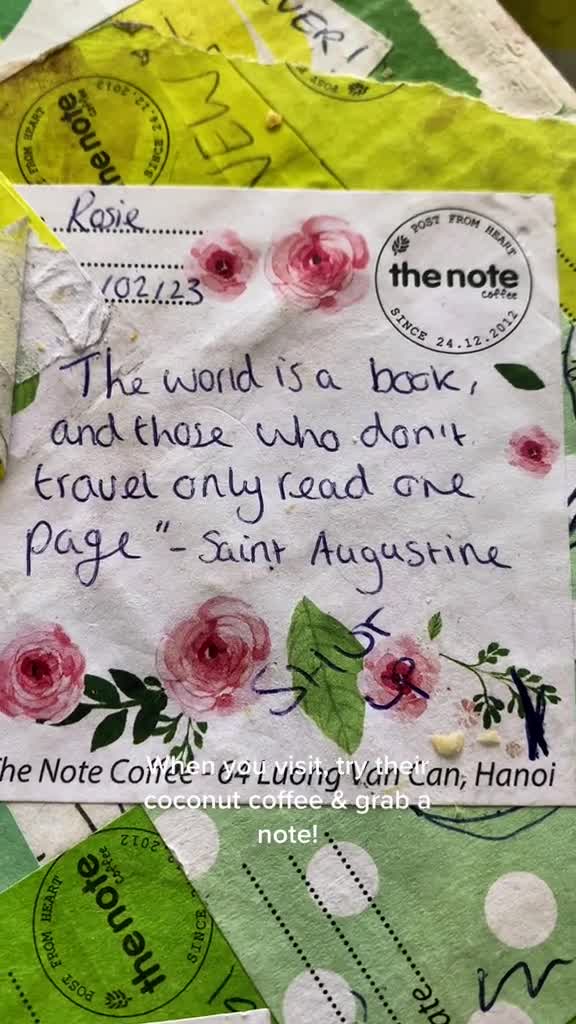 VER!
POST FROM HEART
the note
coffee
SINCE 24.12.2012
VEW
Rosie
/02/23
POST FROM HEART
the note
coffee
SINCE 24.12.2012
"The world is a book,
and those who don't
travel only read one
page" - Saint Augustine
SHUT
UP
The Note Coffee - 64 Luong Van Can, Hanoi
When you visit, try their
coconut coffee & grab a
note!
POST FROM HEART
the note
coffee
SINCE
2012
ate